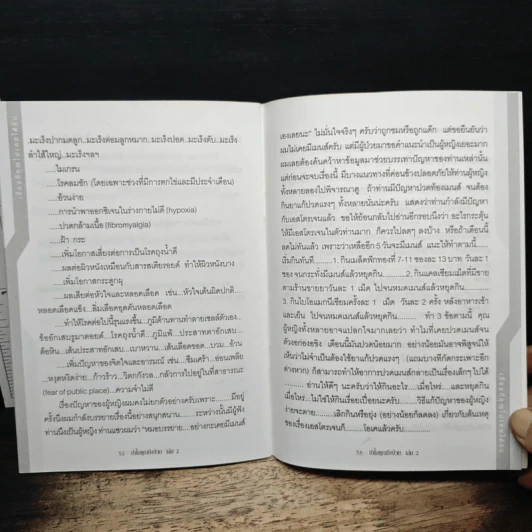 ..มะเร็งปากมดลูก...มะเร็งต่อมลูกหมาก...มะเร็งปอด...มะเร็งตับ...มะเร็ง
ลำไส้ใหญ่...มะเร็งฯลฯ
.....ไมเกรน
.....โรคลมชัก (โดยเฉพาะช่วงที่มีการตกไข่และมีประจำเดือน)
.....อ้วนง่าย
.....การนำพาออกซิเจนในร่างกายไม่ดี (hypoxia)
.....ปวดกล้ามเนื้อ (fibromyalgia)
.....ฝ้า กระ
.....เพิ่มโอกาสเสี่ยงต่อการเป็นโรคถุงน้ำดี
.....ผลต่อผิวหนังเหมือนกับสารสเตียรอยด์ ทำให้ผิวหนังบาง
.....เพิ่มโอกาสกระดูกผุ
.....ผลเสียต่อหัวใจและหลอดเลือด เช่น...หัวใจเต้นผิดปกติ...
หลอดเลือดแข็ง...ลิ่มเลือดอุดตันหลอดเลือด
.....ทำให้โรคต่อไปนี้รุนแรงขึ้น...ภูมิต้านทานทำลายเซลล์ตัวเอง..
ข้ออักเสบรูมาตอยด์...โรคถุงน้ำดี...ภูมิแพ้...ประสาทตาอักเสบ...
ต้อหิน...เส้นประสาทอักเสบ...เบาหวาน...เส้นเลือดขอด...บวม...อ้วน
.....เพิ่มปัญหาของจิตใจและอารมณ์ เช่น...ซึมเศร้า...อ่อนเพลีย
...หงุดหงิดง่าย...ก้าวร้าว...วิตกกังวล...กลัวการไปอยู่ในที่สาธารณะ
(fear of public place)....ความจำไม่ดี
เรื่องปัญหาของผู้หญิงผมคงไม่ยกตัวอย่างครับเพราะ.....มีอยู่
ครั้งนึงผมกำลังบรรยายเรื่องนี้อย่างสนุกสนาน.......ระหว่างนั้นมีผู้ฟัง
ท่านนึงเป็นผู้หญิง ท่านแซวผมว่า "หมอบรรยาย....อย่างกะเคยมีเมนส์
52 ทำไมคุณถึงป่วย เล่ม 2
เองเลยนะ" ไม่มั่นใจจริงๆ ครับว่าถูกชมหรือถูกแด๊ก แต่ขอยืนยันว่า
ผมไม่เคยมีเมนส์ครับ แต่มีผู้ป่วยมาขอคำแนะนำเป็นผู้หญิงเยอะมาก
ผมเลยต้องค้นคว้าหาข้อมูลมาช่วยบรรเทาปัญหาของท่านเหล่านั้น
แต่ก่อนจะจบเรื่องนี้ มีบางแนวทางที่ค่อนข้างปลอดภัยให้ท่านผู้หญิง
ทั้งหลายลองไปพิจารณาดู ถ้าท่านมีปัญหาปวดท้องเมนส์ จนต้อง
กินยาแก้ปวดแรงๆ ทั้งหลายนั่นน่ะครับ แสดงว่าท่านกำลังมีปัญหา
กับเอสโตรเจนแล้ว ขอให้ย้อนกลับไปอ่านอีกรอบนึงว่า อะไรกระตุ้น
ให้มีเอสโตรเจนในตัวท่านมาก ก็ควรไปลดๆ ลงบ้าง หรือถ้าเดือนนี้
ลดไม่ทันแล้ว เพราะว่าเหลืออีก 5 วันจะมีเมนส์ แนะให้ทำตามนี้......
เริ่มกินทันที..........1. กินเมล็ดฟักทอง 7-11 ซองละ 13 บาท วันละ 1
ซอง จนกระทั่งมีเมนส์แล้วหยุดกิน.........2. กินแคลเซียมเม็ดที่มีขาย
ตามร้านขายยาวันละ 1 เม็ด ไปจนหมดเมนส์แล้วหยุดกิน...........
3. กินไบโอแมกนีเซียมครั้งละ 1 เม็ด วันละ 2 ครั้ง หลังอาหารเช้า
และเย็น ไปจนหมดเมนส์แล้วหยุดกิน......... ทำ 3 ข้อตามนี้ คุณ
ผู้หญิงทั้งหลายอาจแปลกใจมากเลยว่า ทำไมที่เคยปวดเมนส์จน
ตัวงอก่องอขิง เดือนนี้มันปวดน้อยมาก อย่างน้อยมันอาจพิสูจน์ให้
เห็นว่าไม่จำเป็นต้องใช้ยาแก้ปวดแรงๆ (แถมบางทีกัดกระเพาะอีก
ต่างหาก) ก็สามารถทำให้อาการปวดเมนส์กลายเป็นเรื่องเด็กๆ ไปได้
........... อ่านให้ดีๆ นะครับว่าให้กินอะไร.....เมื่อไหร่.....และหยุดกิน
เมื่อไหร่.....ไม่ใช่ให้กินเรื่อยเปื่อยนะครับ..........วิธีแก้ปัญหาของผู้หญิง
ง่ายจะตาย......เลิกกินหรือยุ่ง (อย่างน้อยก็ลดลง) เกี่ยวกับต้นเหตุ
ของเรื่องเอสโตรเจนก็..............โอเคแล้วครับ...............
53 ทำไมคุณถึงป่วย เล่ม 2